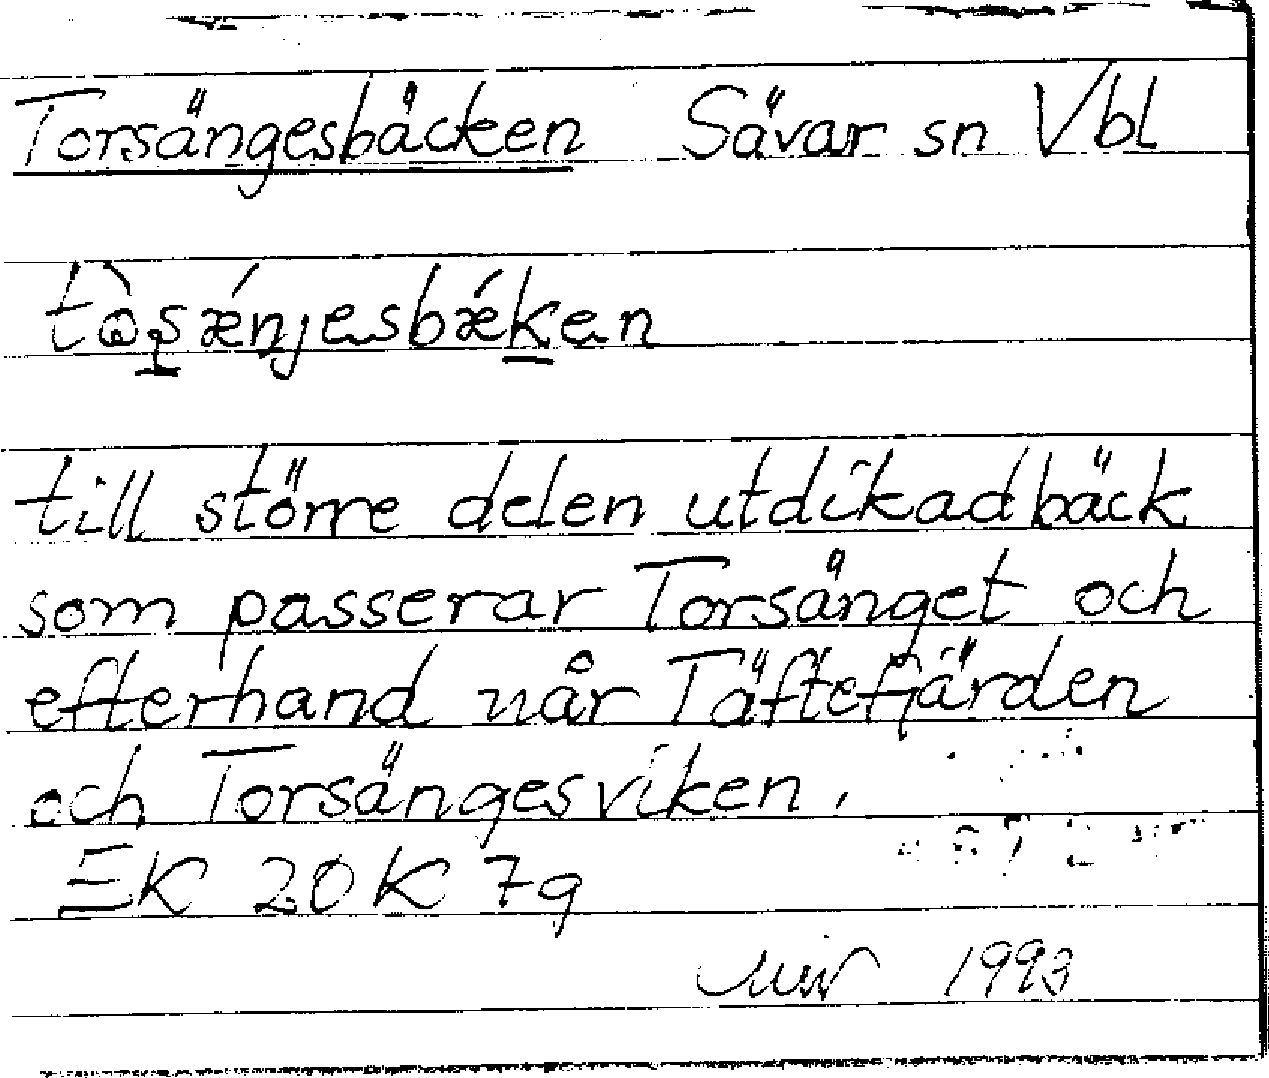 Torsängesbäcken Sävar sn Vbl
till större delen utdikad bäck
som passerar Torsänget och
efterhand når Täftefjärden
och Torsängesviken.
EK 20K 7g
1993